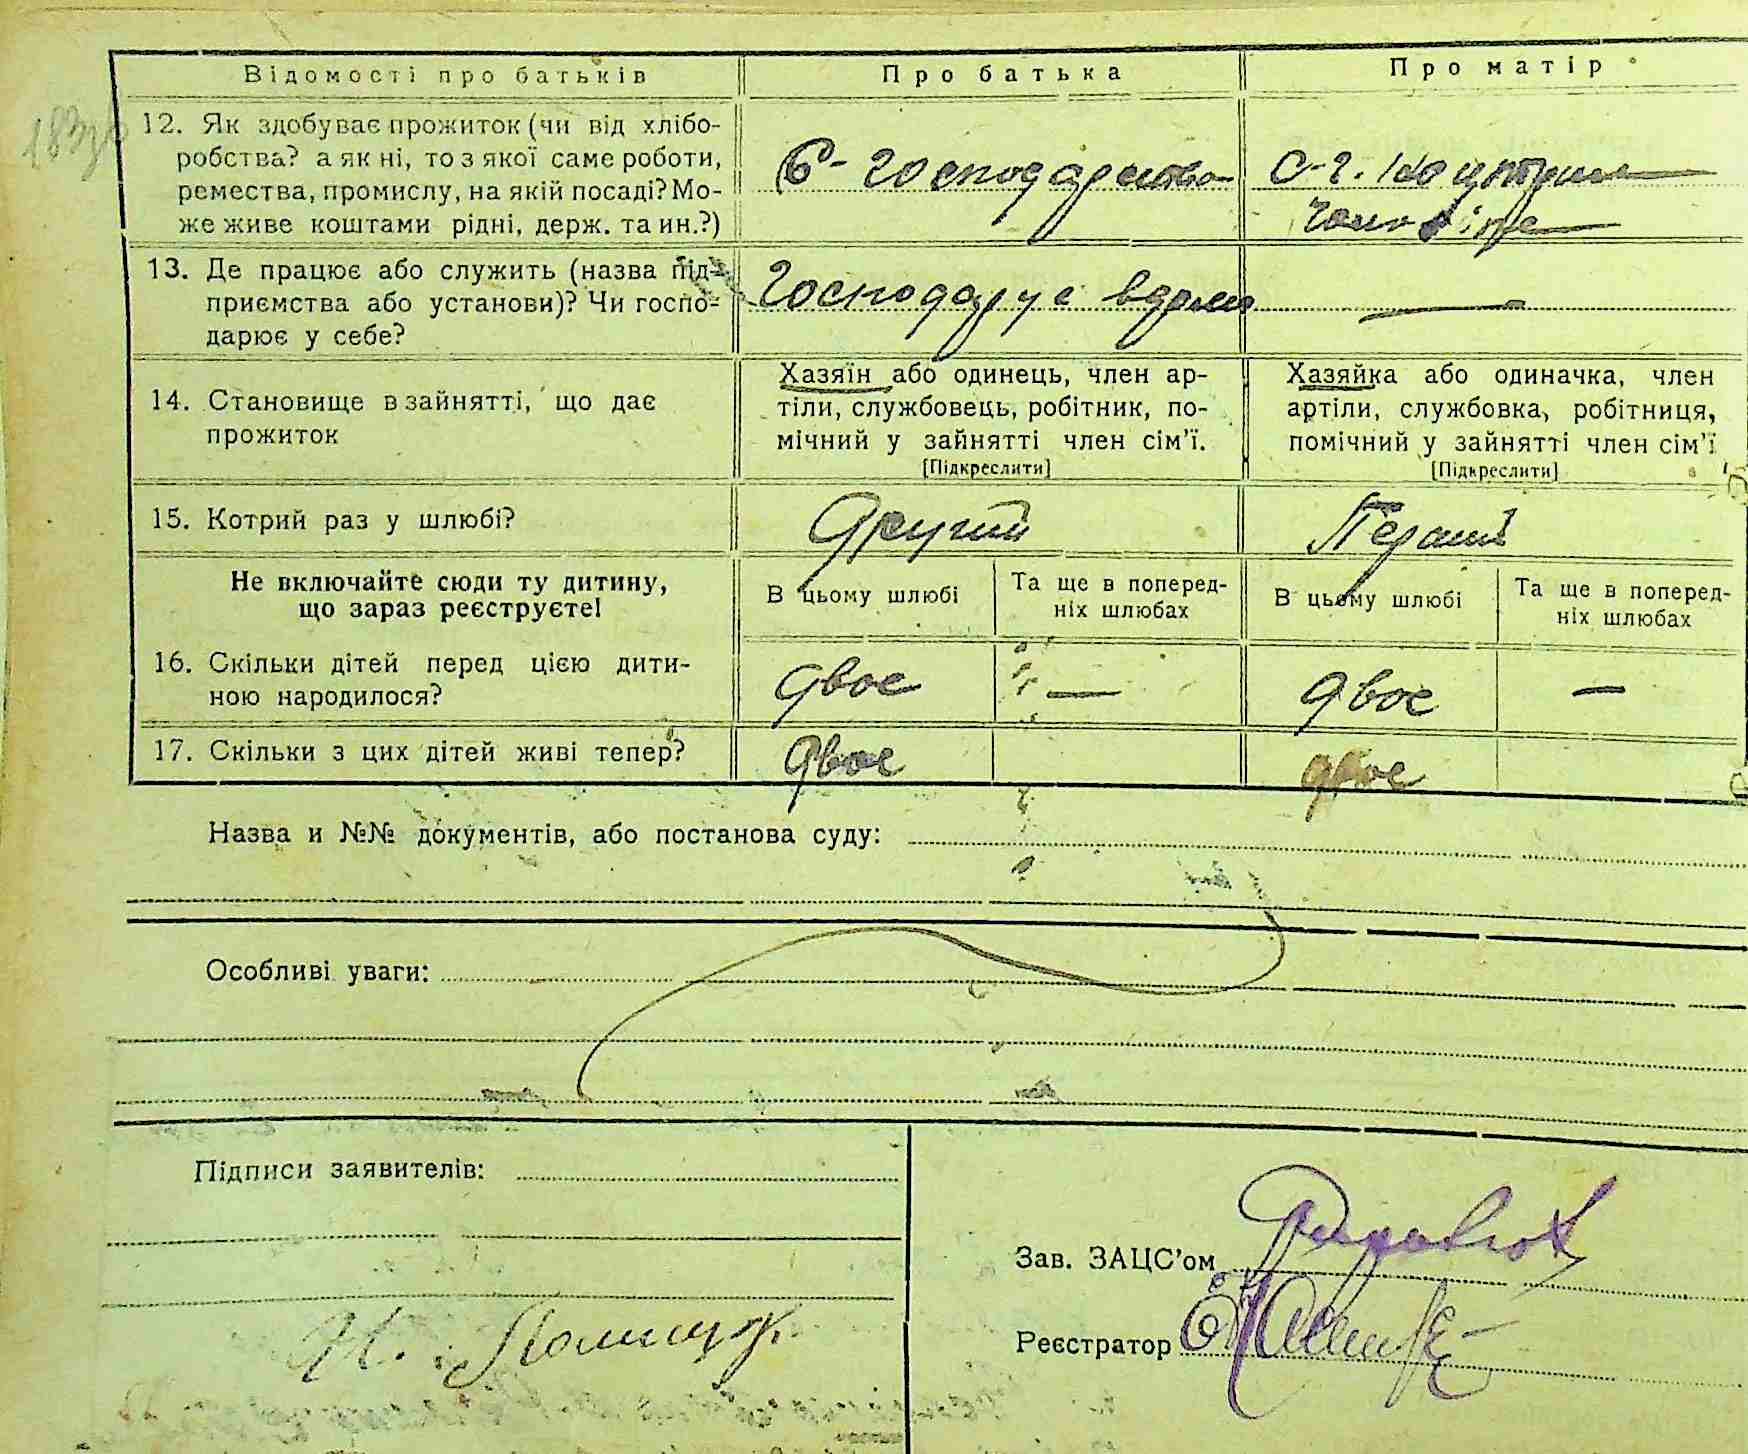 Відомості про батьків
Про батька
Про матір
12. Як здобуває прожиток (чи від хлібо-
робства? а як ні, то з якої саме роботи,
ремества, промислу, на якій посаді? Мо-
же живе коштами рідні, держ. та ин.?)
С-господарство
С-г.
13. Де працює або служить (назва під-
приємства або установи)? Чи госпо-
дарює у себе?
Господарує вдома
—
14. Становище в зайнятті, що дає
прожиток
Хазяїн або одинець, член ар-
тіли, службовець, робітник, по-
мічний у зайнятті член сім'ї.
[Підкреслити]
Хазяйка або одиначка, член
артіли, службовка, робітниця,
помічний у зайнятті член сім'ї
[Підкреслити]
15. Котрий раз у шлюбі?
Другий
Перший
Не включайте сюди ту дитину,
що зараз реєструєте!
В цьому шлюбі
Та ще в поперед-
ніх шлюбах
В цьому шлюбі
Та ще в поперед-
ніх шлюбах
16. Скільки дітей перед цією дити-
ною народилося?
двоє
—
двоє
—
17. Скільки з цих дітей живі тепер?
двоє
двоє
Назва и №№ документів, або постанова суду:
Особливі уваги:
Підписи заявителів:
Зав. ЗАЦС'ом
Реєстратор